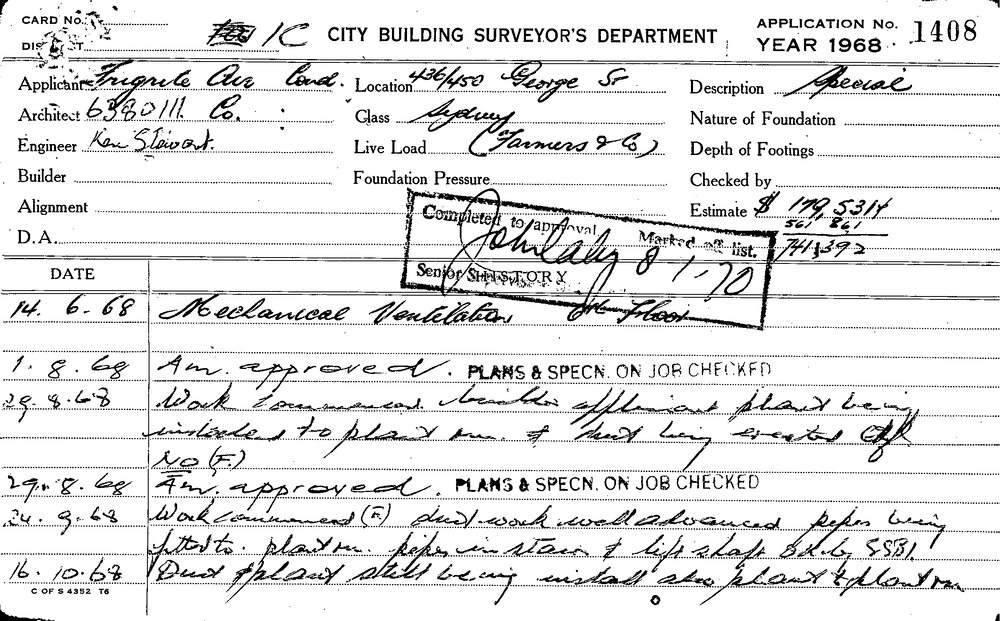 CARD No.
1C CITY BUILDING SURVEYOR'S DEPARTMENT
APPLICATION No. 1408
YEAR 1968
Applicant Frigrite Air Cond. Location 436/450 George St Description Special
Architect 6380111. Co. Class Sydney Nature of Foundation
Engineer Ken Stewart. Live Load (Farmers & Co) Depth of Footings
Builder Foundation Pressure Checked by
Alignment Estimate $ 179,531
561 861
741,392
D.A.
Completed to approval Marked off list.
John Daly 8 1.70
Senior
DATE HISTORY
14. 6-68 Mechanical Ventilation 6th Floor
1. 8. 68 Am. approved. PLANS & SPECN. ON JOB CHECKED
29.8.68 Work commenced builder applicant plant being
installed to plant rm. & duct being erected
NO (F.)
29. 8. 68 Am. approved. PLANS & SPECN. ON JOB CHECKED
24. 9. 68 Work commenced (F.) duct work well advanced pipes being
fitted to plant rm. pipes in stairs & lift shaft O.K. by
16. 10. 68 Duct & plant still being install also plant & plant rm.
C OF S 4352 T6